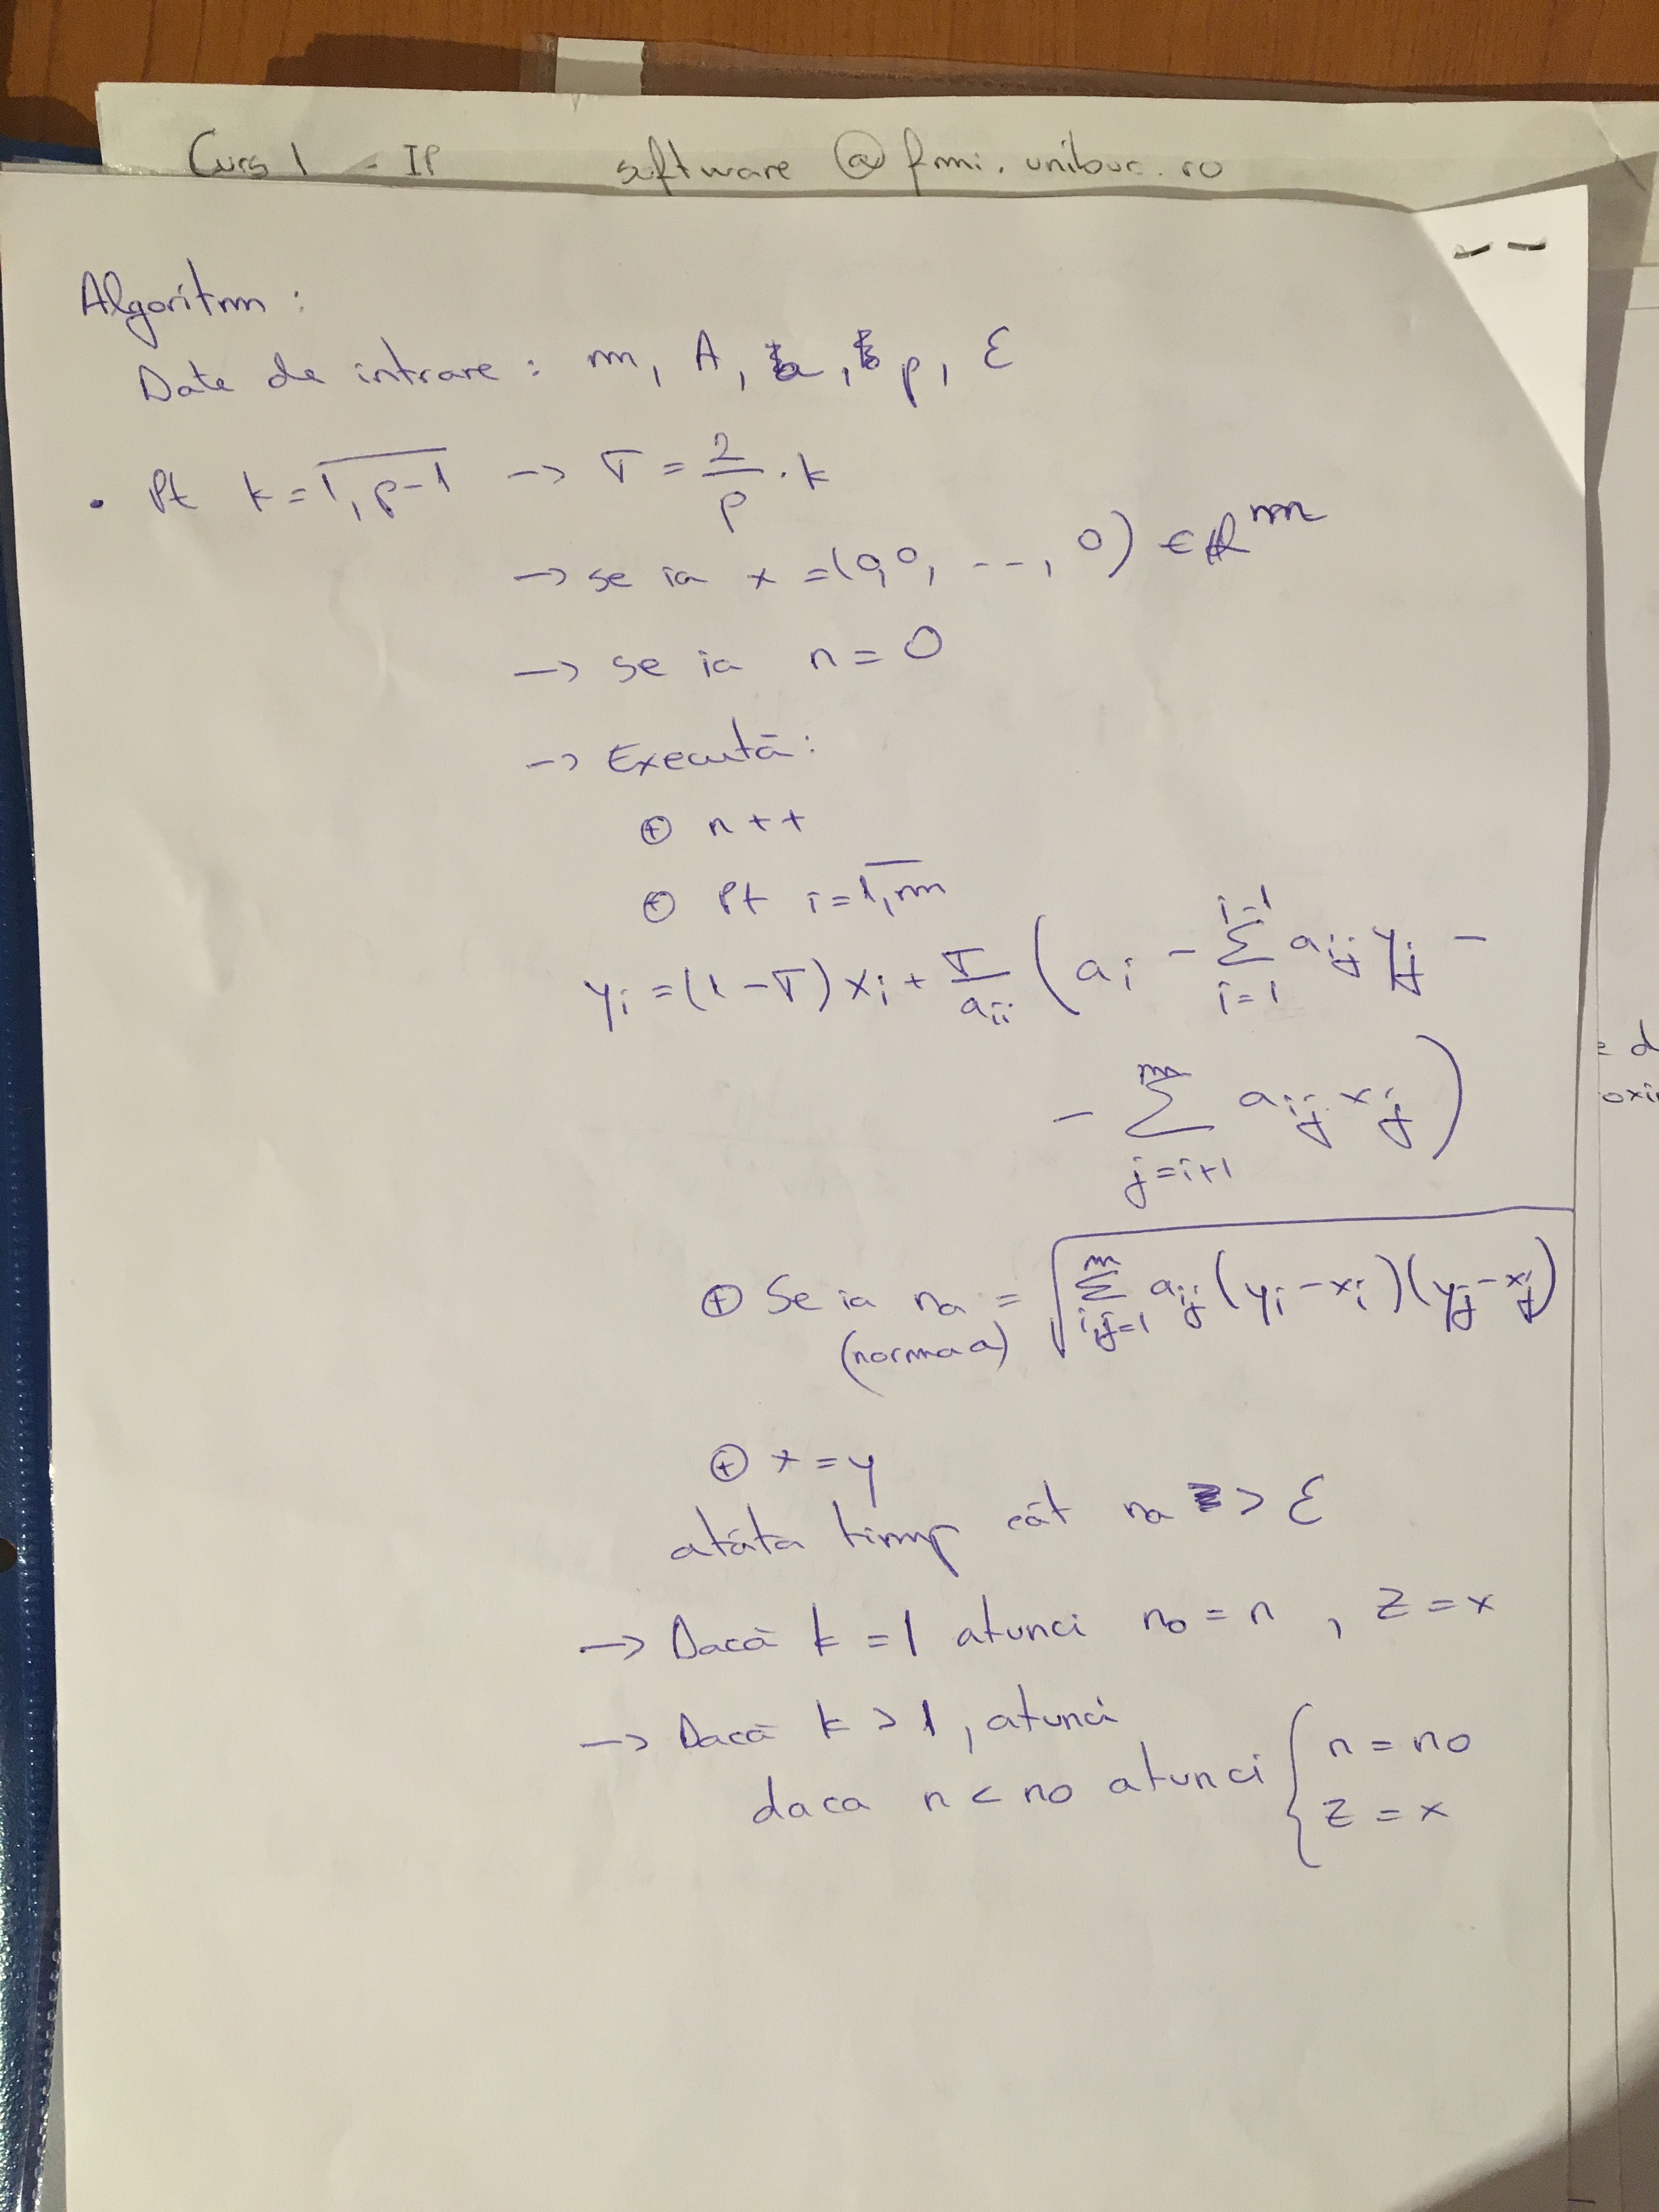 Curs 1 - IP software @ fmi.unibuc.ro
Algoritm :
Date de intrare : m, A, a, p, ε
• Pt k = 1, p-1 -> σ = 2/p · k
-> se ia x = (0,0, ---, 0) ∈ R^m
-> se ia n = 0
-> Execută :
⊕ n++
⊕ Pt i = 1, m
y_i = (1 - σ) x_i + σ/a_ii ( a_i - Σ_{i=1}^{i-1} a_ij y_j -
- Σ_{j=i+1}^{m} a_ij x_j )
⊕ Se ia na = √( Σ_{i,j=1}^{m} a_ij (y_i - x_i)(y_j - x_j) )
(norma a)
⊕ x = y
atâta timp cât na > ε
-> Dacă k = 1 atunci no = n , z = x
-> Dacă k > 1 , atunci
daca n < no atunci { n = no
z = x
= d
oxi